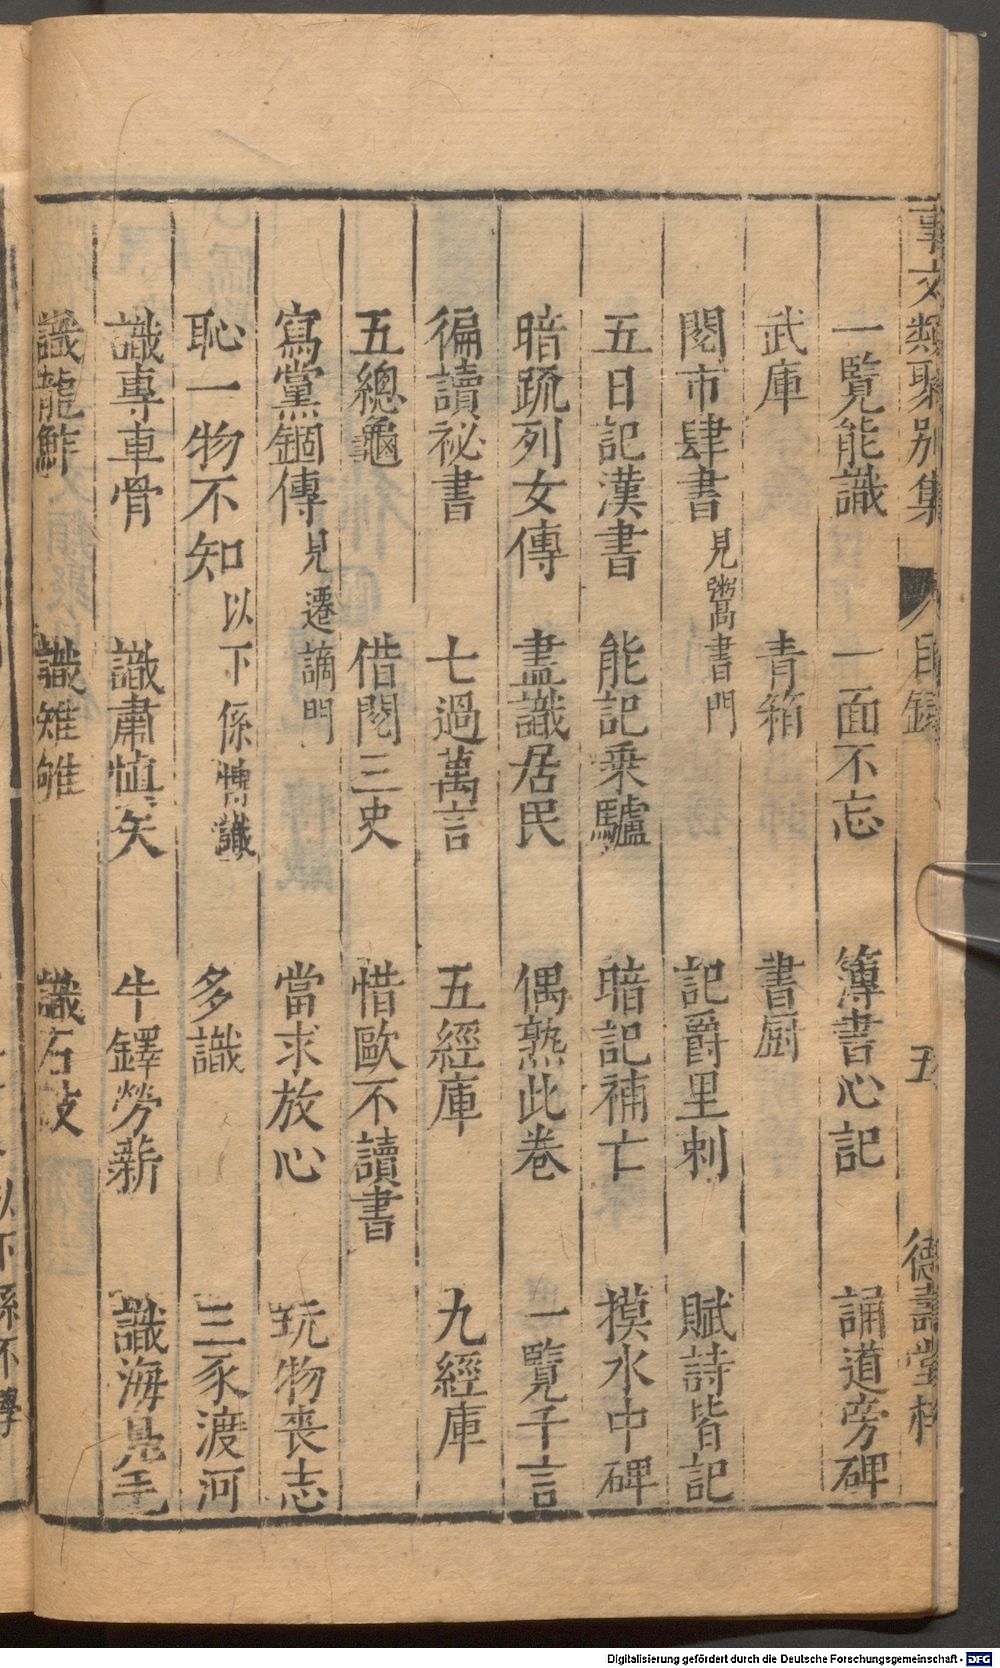 事文類聚別集 目錄 五 德壽堂梓
一覽能識 一面不忘 簿書心記 誦道旁碑
武庫 青箱 書厨
閱市肆書見鬻書門 記爵里刺 賦詩皆記
五日記漢書 能記乗驢 暗記補亡 摸水中碑
暗疏列女傳 盡識居民 偶熟此巻 一覽千言
徧讀祕書 七過萬言 五經庫 九經庫
五總龜 借閱三史 惜歐不讀書
寫黨錮傳見遷謫門 當求放心 玩物喪志
恥一物不知以下係慱識 多識 三豕渡河
識專車骨 識肅慎矢 牛鐸勞薪 識海鳧毛
識龍鮓 識雉雊 識石鼓
以下係不學
Digitalisierung gefördert durch die Deutsche Forschungsgemeinschaft - DFG